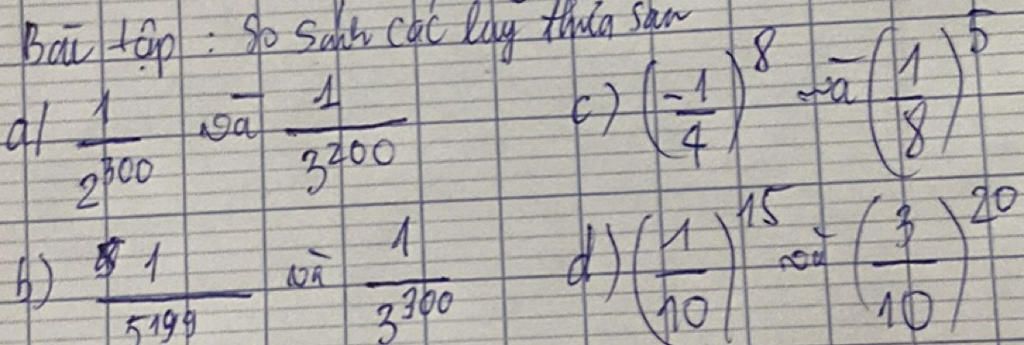 Bài tập : So sánh các lũy thừa sau
a) 1/2^300 và 1/3^200 c) (-1/4)^8 và (1/8)^5
b) 1/5^199 và 1/3^300 d) (1/10)^15 và (3/10)^20